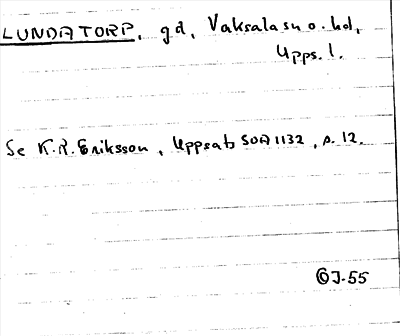 LUNDATORP, gd, Vaksala sn o. hd,
Upps. l.
Se K.R. Eriksson, Uppsats SOA 1132, s. 12.
OJ-55